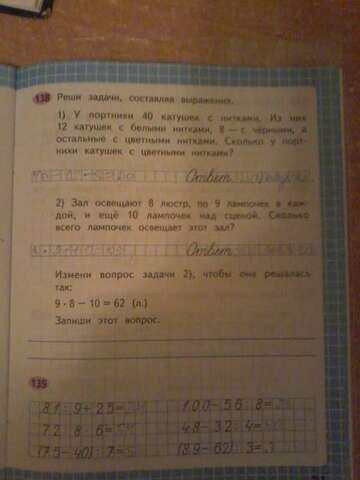 138 Реши задачи, составляя выражения.
1) У портнихи 40 катушек с нитками. Из них
12 катушек с белыми нитками, 8 — с чёрными, а
остальные с цветными нитками. Сколько у порт-
нихи катушек с цветными нитками?
Ответ
2) Зал освещают 8 люстр, по 9 лампочек в каж-
дой, и ещё 10 лампочек над сценой. Сколько
всего лампочек освещает этот зал?
Ответ
Измени вопрос задачи 2), чтобы она решалась
так:
9 · 8 − 10 = 62 (л.)
Запиши этот вопрос.
139
81 : 9 + 25 =
100 − 56 : 8 =
72 : 8 · 6 =
48 : 32 · 4 =
(75 − 40) : 7 =
(89 − 62) : 3 =